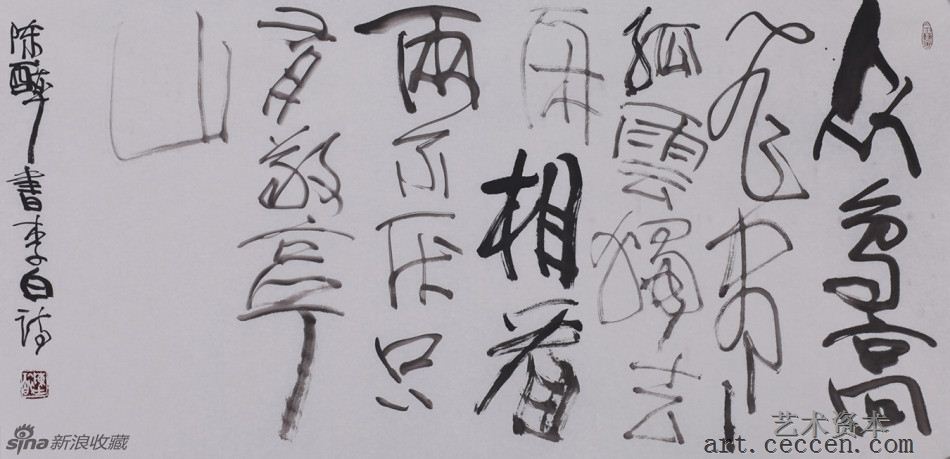 众鸟高
飞尽
孤雲獨去
闲相看
兩不厌只
有敬亭
山
陈醉書李白诗
sina新浪收藏
艺术资本
art.ceccen.com